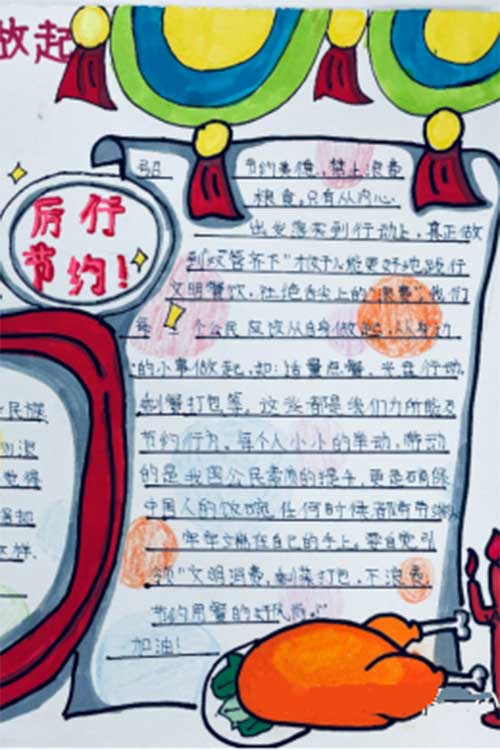 做起
厉行
节约!
节约美德,禁止浪费
粮食,只有从内心
出发落实到行动上,真正做
到"双管齐下"才能更好地践行
文明餐饮,杜绝舌尖上的"浪费",我们
每一个公民应该从自身做起,从身边
的小事做起,如:适量点餐,光盘行动,
剩餐打包等。这些都是我们力所能及
节约行为,每个人小小的举动,带动
的是我国公民素质的提升,更是确保
中国人的饭碗任何时候都
牢牢端在自己的手上。要自觉引
领"文明消费,剩菜打包,不浪费,
节约用餐的好风尚。"
加油!
民族
浪